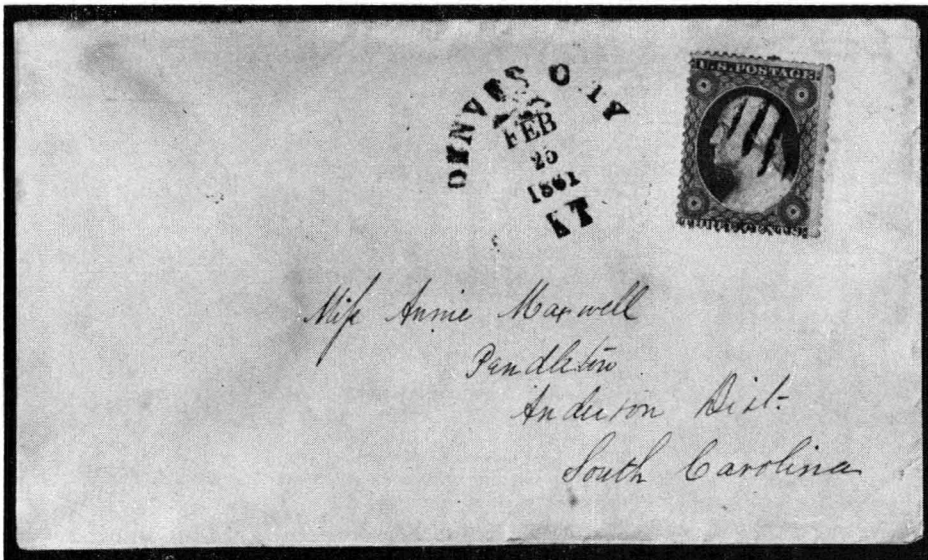 DENVER CITY
FEB
25
1861
KT
U.S. POSTAGE
THREE CENTS
Miſs Annie Maxwell
Pendleton
Anderson Dist-
South Carolina